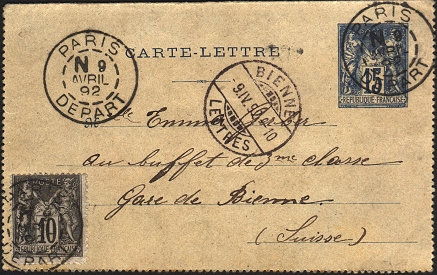 CARTE-LETTRE
PARIS
N 9
AVRIL
92
DEPART
PARIS
N 9
92
DEPART
15
REPUBLIQUE FRANCAISE
BIENNE
LETTRES
Emma
au buffet de 3me classe
Gare de Bienne
(Suisse)
POSTE
10
REPUBLIQUE FRANCAISE
DEPART